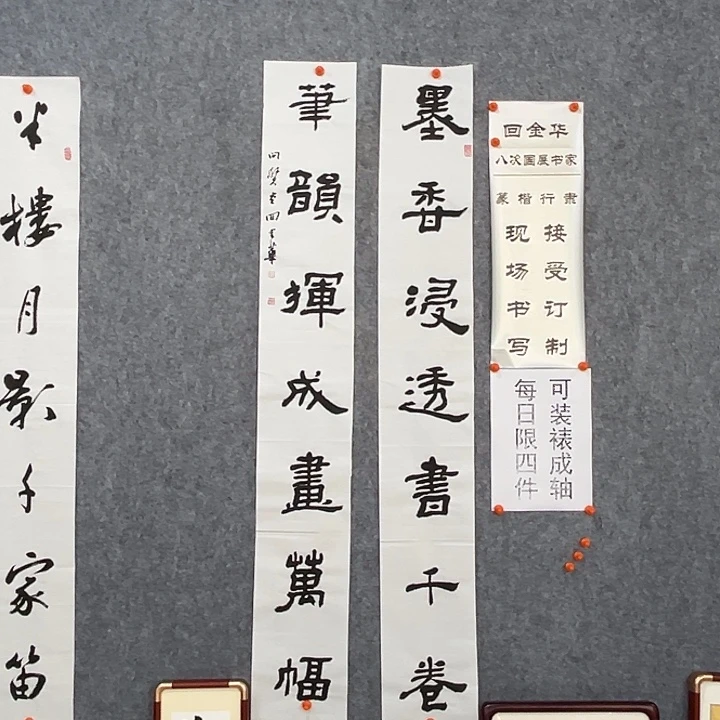 回金华
八次国展书家
篆楷行隶
接受订制
现场书写
可装裱成轴
每日限四件
墨香浸透書千卷
筆韻揮成畫萬幅
半樓月影千家笛